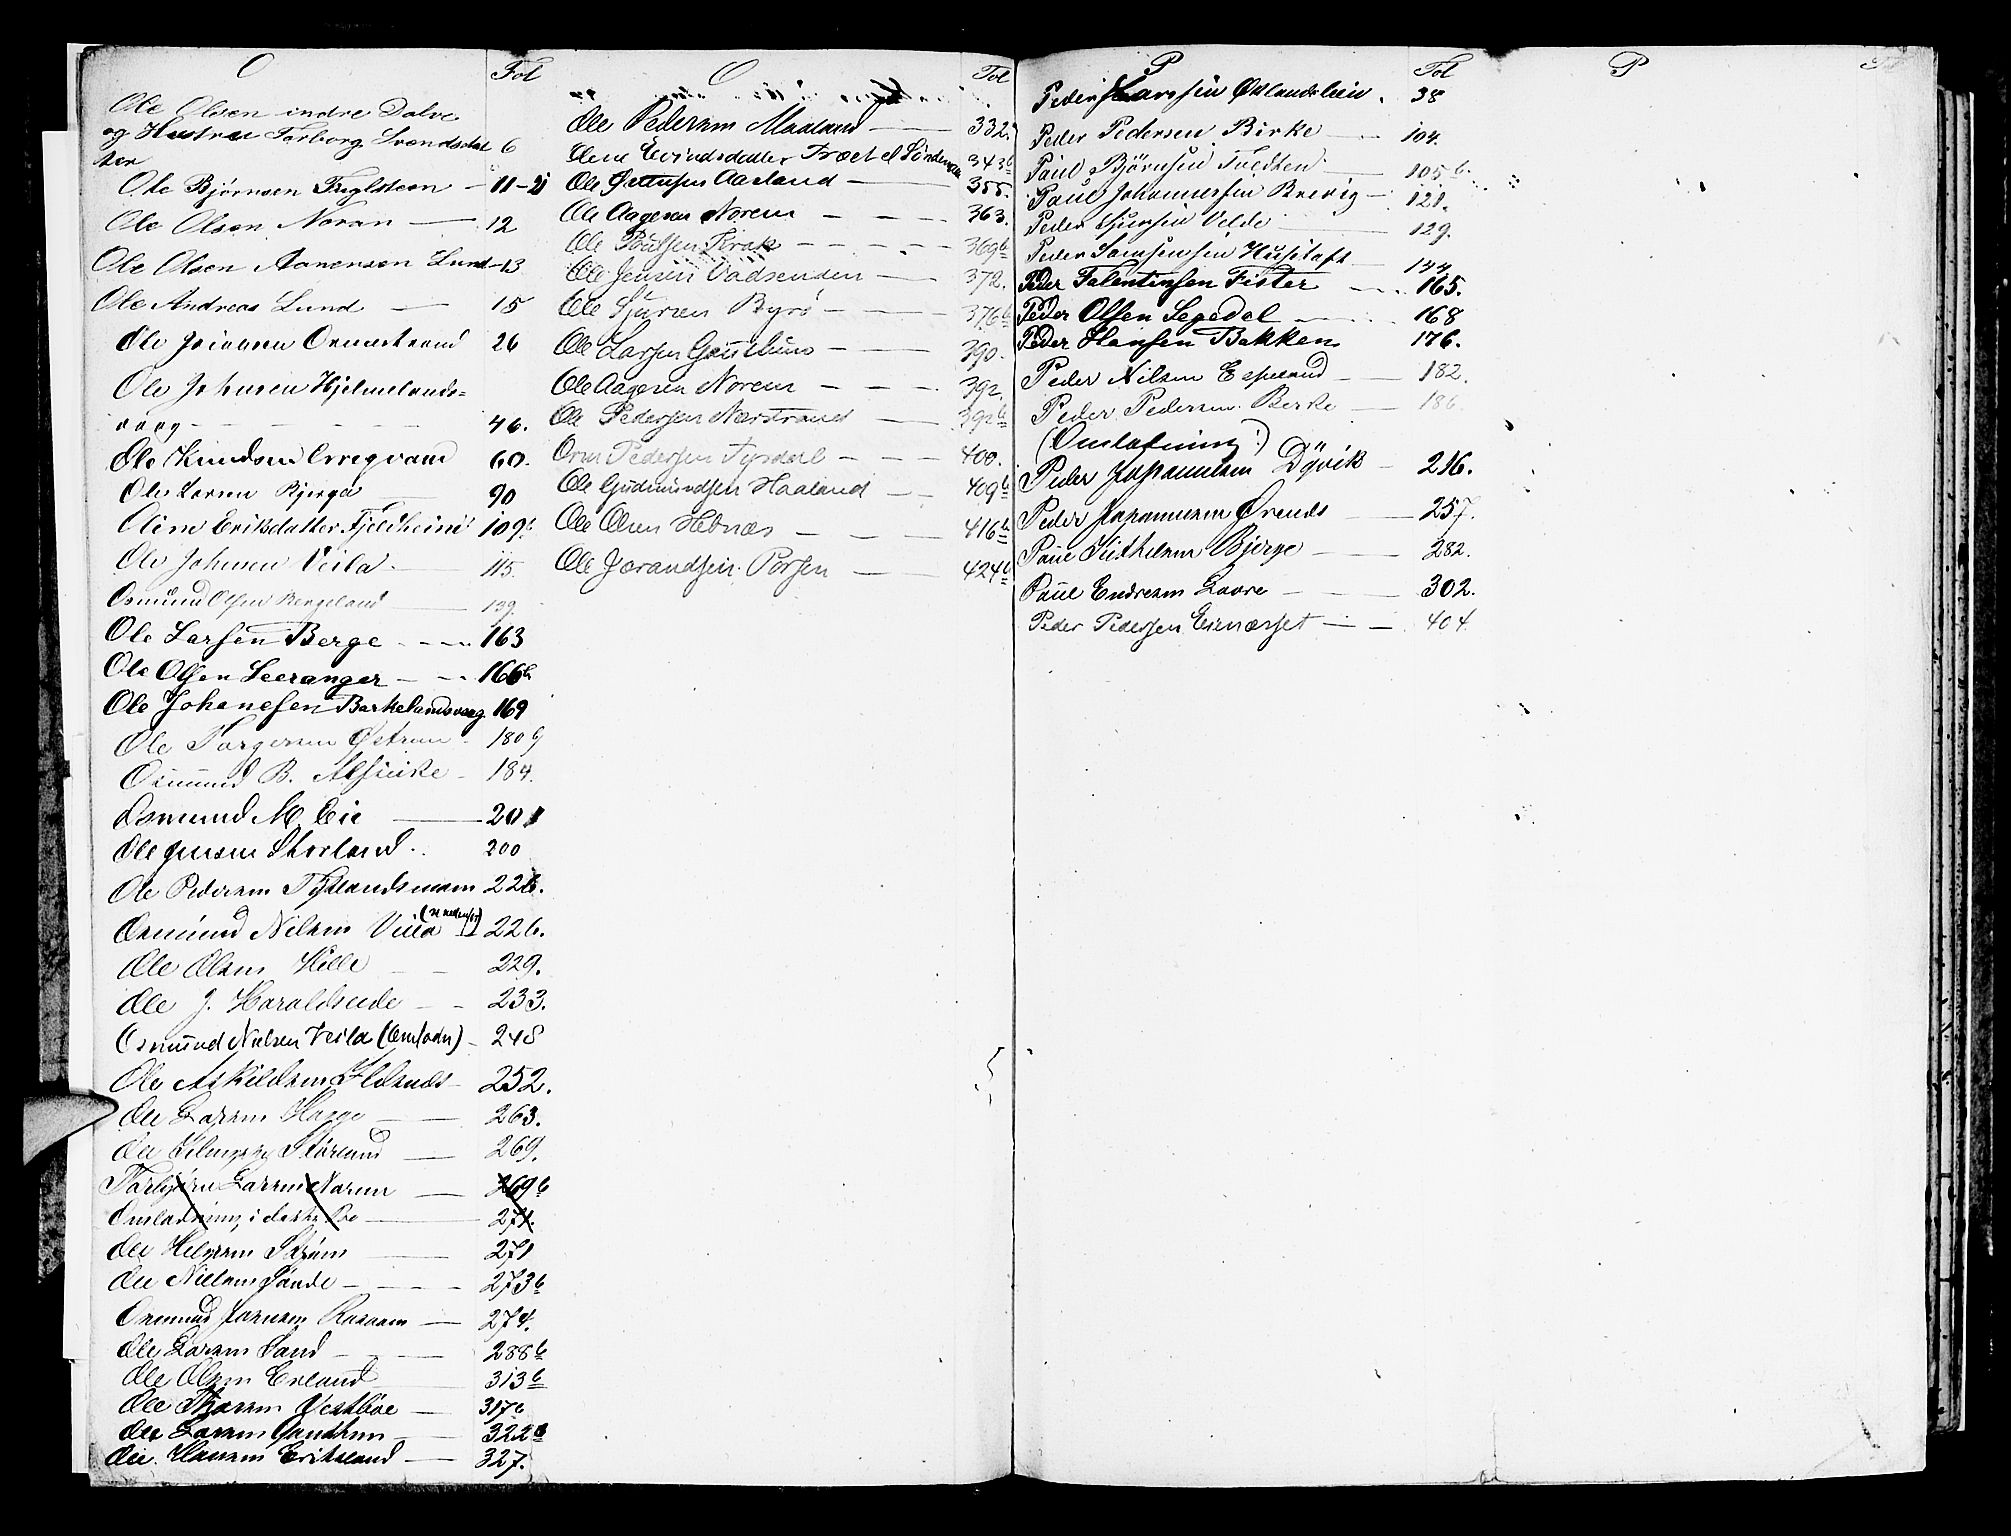 O Fol
Ole Olsen indre Dalve
og Hustrue Torborg Svendsdat
ter 6
Ole Bjørnsen Fuglsteen 11-21
Ole Olsen Noran 12
Ole Olsen Aanensen Lund 13
Ole Andreas Lund 15
Ole Ormestrand 26
Ole Johnsen Hjelmelands-
vaag 46.
Ole Knudsen 60.
Ole Larsen Bjerge 90
Oline Eriksdatter Fjeldheim 109b
Ole Johnsen Veila 115.
Osmund Olsen Bergeland 139.
Ole Larsen Berge 163
Ole Olsen Leeranger 166b
Ole Johanesen Barkelandsvaag 169
Ole Torgersen Østrem 180b
Osmund B. Alsvike 184.
Osmund M. Eie 201
Ole Jensen Storland 200
Ole Pedersen 226.
Osmund Nilsen Veila (se nedenfor) 226.
Ole Olsen Hille 229.
Ole J. Haraldseide 233.
Osmund Nielsen Veila (Omladn) 248
Ole Askildsen 252.
Ole Larsen Hagge 263.
Ole Størland 269.
Torbjørn Larsen Narum 269b
Omladning i dette Bo 271.
Ole Helgesen Skjøm 271
Ole Nielsen Sande 273b
Osmund 274.
Ole Larsen Sand 288b
Ole Olsen Erland 313b
Ole Thorsen Vestbøe 317b
Ole Larsen 322b
Ole Hansen Eriksland 327.
O Fol
Ole Pedersen Maaland 332.
Olene Eivindsdatter Trætel Sønden 343b
Ole Aasland 355.
Ole Aagesen Norem 363.
Ole Poulsen 369b
Ole Jensen Vadsenden 372.
Ole Sjursen Byrø 376b
Ole Larsen Gauthun 390.
Ole Aagesen Norem 392.
Ole Pedersen Nærstrand 392b
Orm Pedersen Tysdal 400.
Ole Gudmundsen Haaland 409b
Ole Olsen Hebnæs 416b
Ole Jorandsen Porsen 424b
P Fol
Peder Larssen Østlandsleien 38
Peder Pedersen Birke 104.
Paul Bjørnsen Tvedten 105b.
Paul Johannessen Brevig 121.
Peder Sjursen Velde 129.
Peder Samsonsen Hustoft 144
Peder Falentinsen Fister 165.
Peder Olsen Segedal 168
Peder Hansen Bakken 176.
Peder Nilsen Espeland 182.
Peder Pedersen Berke 186.
(Omladning)
Peder Johannesen Dyvik 216.
Peder Johannesen 257.
Paul Bjerge 282.
Paul Endresen Laare 302.
Peder Pedersen 404.
P Fol